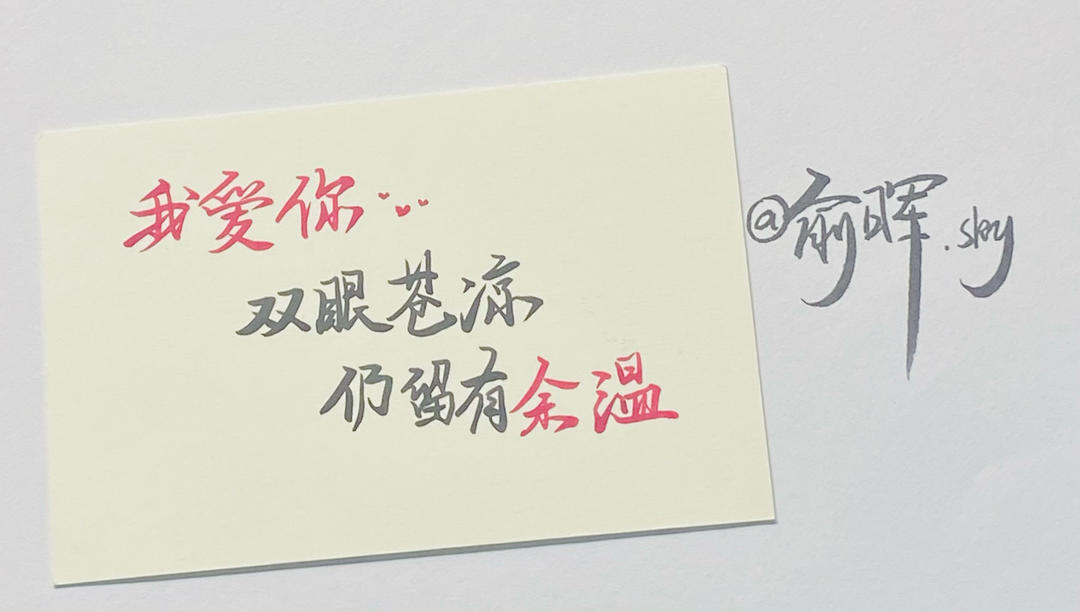 我爱你
双眼苍凉
仍留有余温
@俞晖.sky